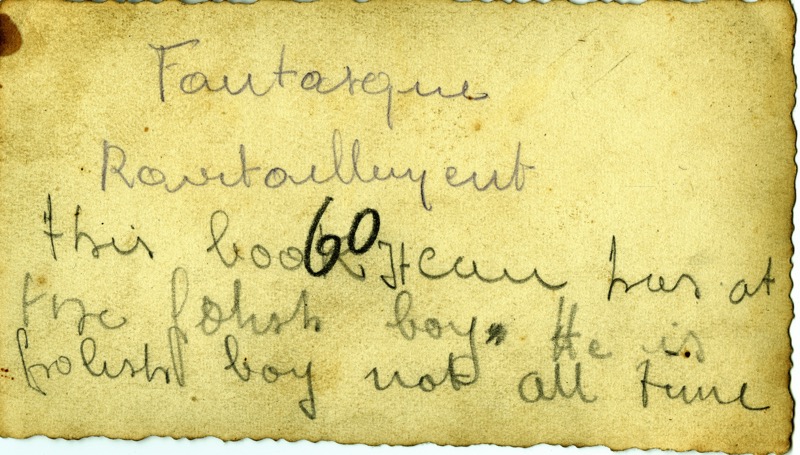 Fantasque
Ravitaillement
60
this book Item has at
the folish boy. He is
folish boy not all time